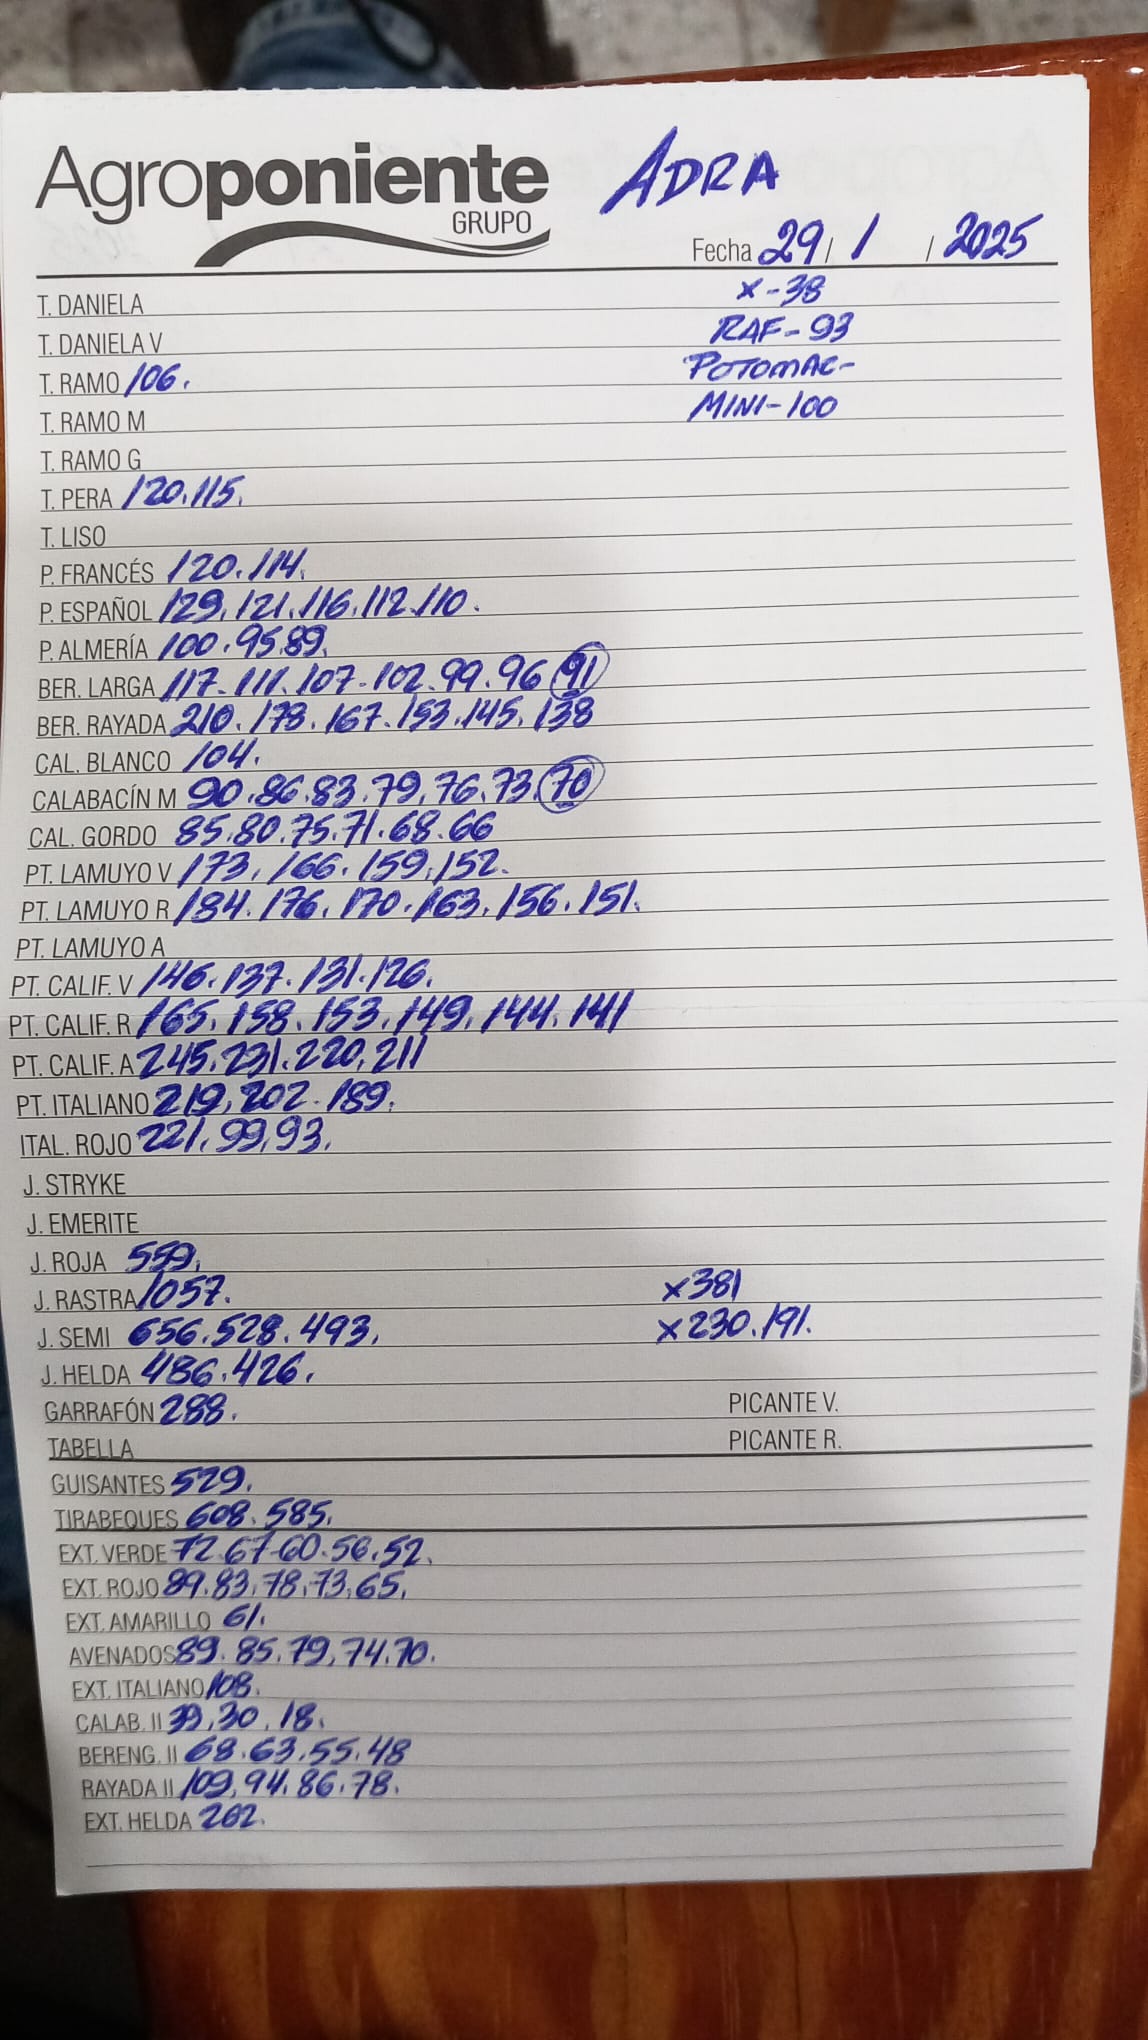 Agroponiente ADRA
GRUPO
Fecha 29/1/2025
T. DANIELA x-38
T. DANIELA V RAF-93
T. RAMO 106. POTOMAC-
T. RAMO M MINI-100
T. RAMO G
T. PERA 120.115.
T. LISO
P. FRANCÉS 120.114.
P. ESPAÑOL 129.121.116.112.110.
P. ALMERÍA 100.95.89.
BER. LARGA 117.111.107-102.99.96 91
BER. RAYADA 210.178.167.153.145.138
CAL. BLANCO 104.
CALABACÍN M 90.86.83.79.76.73.70
CAL. GORDO 85.80.75.71.68.66
PT. LAMUYO V 173.166.159.152.
PT. LAMUYO R 184.176.170.163.156.151.
PT. LAMUYO A
PT. CALIF. V 146.137.131.126.
PT. CALIF. R 165.158.153.149.144.141
PT. CALIF. A 245.231.220.211
PT. ITALIANO 219,202.189.
ITAL. ROJO 221.99.93.
J. STRYKE
J. EMERITE
J. ROJA 559.
J. RASTRA 1057. x381
J. SEMI 656.528.493. x230.191.
J. HELDA 486.426.
GARRAFÓN 288. PICANTE V.
TABELLA PICANTE R.
GUISANTES 529.
TIRABEQUES 608.585.
EXT. VERDE 72.67-60.56.52.
EXT. ROJO 89.83.78.73.65.
EXT. AMARILLO 61.
AVENADOS 89.85.79,74.70.
EXT. ITALIANO 108.
CALAB. II 39,30.18.
BERENG. II 68.63.55.48
RAYADA II 109,94.86.78.
EXT. HELDA 262.